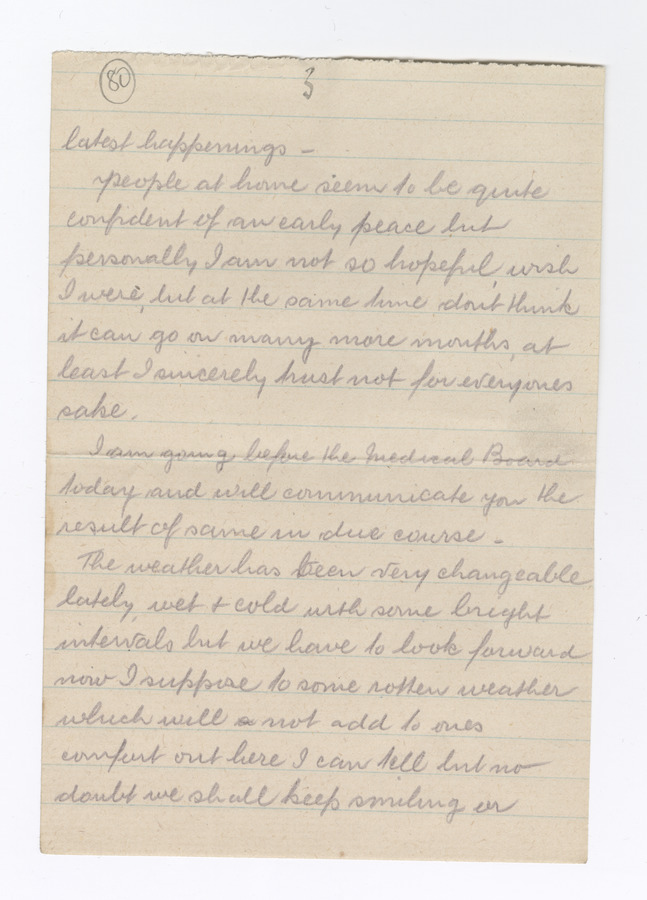 80
3
latest happenings -
People at home seem to be quite
confident of an early peace but
personally I am not so hopeful, wish
I were, but at the same time dont think
it can go on many more months, at
least I sincerely trust not for everyones
sake.
I am going before the Medical Board
today and will communicate you the
result of same in due course -
The weather has been very changeable
lately, wet + cold with some bright
intervals but we have to look forward
now I suppose to some rotten weather
which will not add to ones
comfort out here I can tell but no
doubt we shall keep smiling or